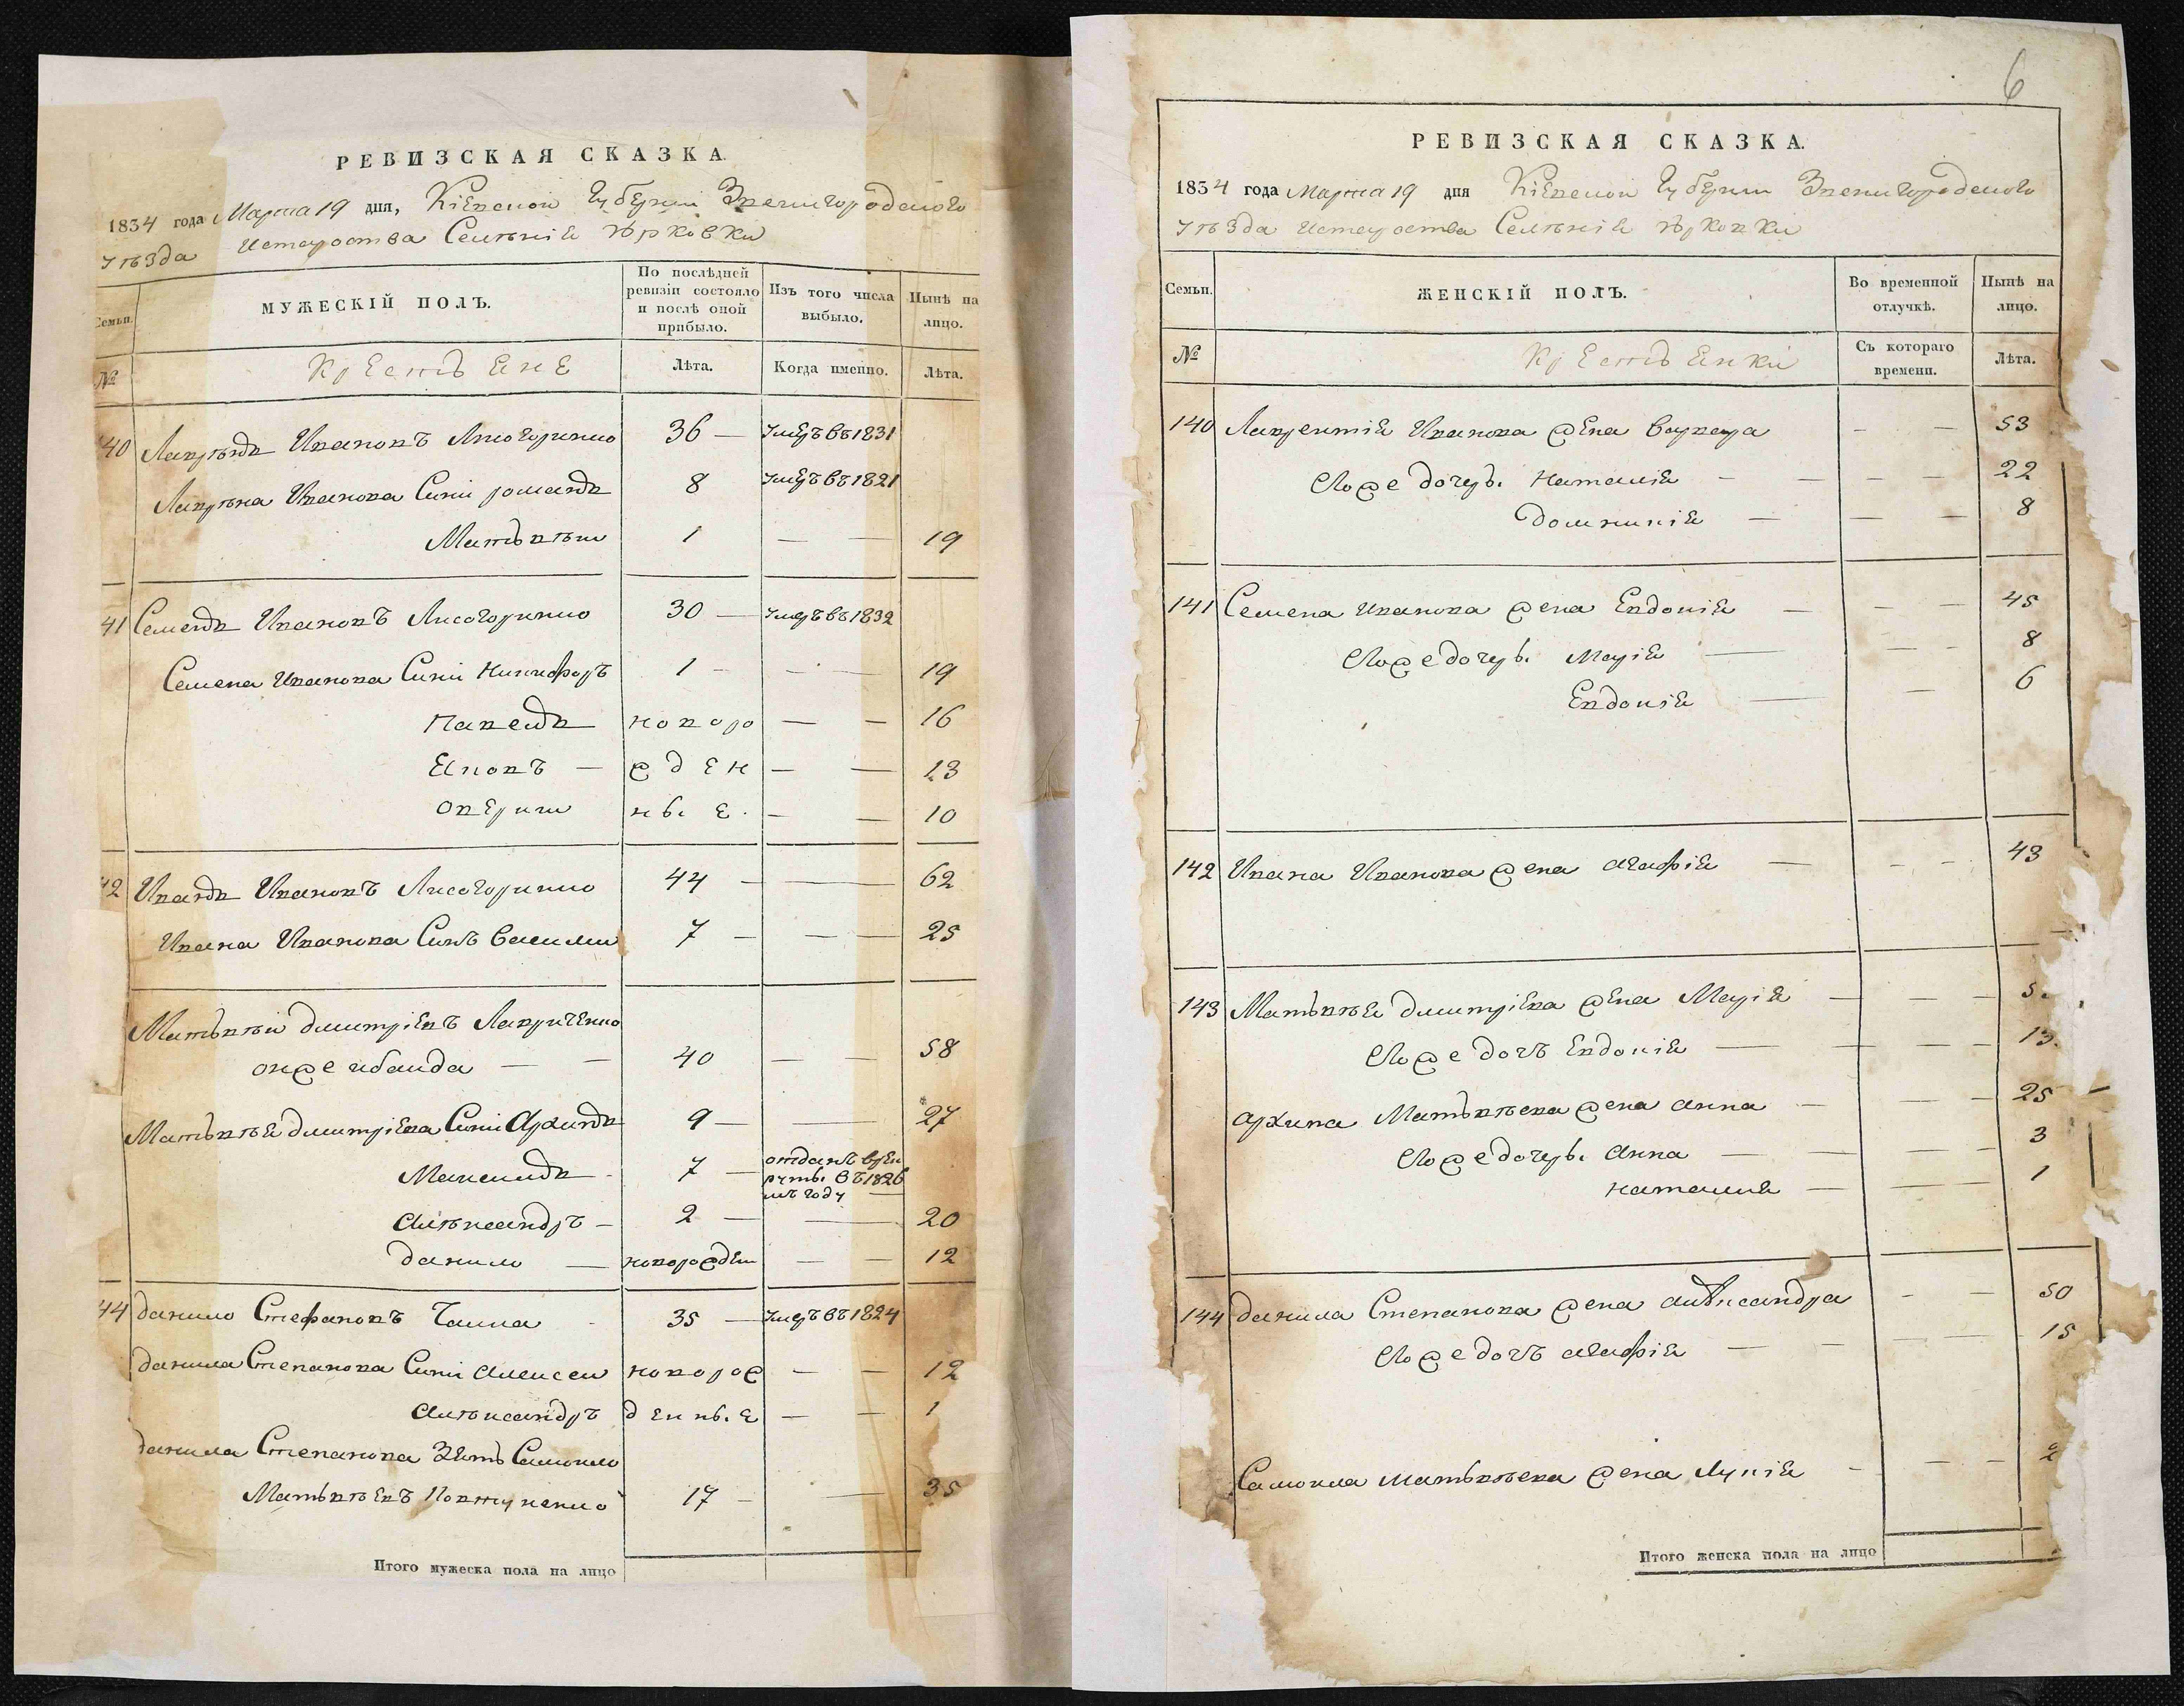 РЕВИЗСКАЯ СКАЗКА.
1834 года Марта 19 дня, Кіевской Губерніи Звенигородского
уѣзда Истароства Селѣнія Ѣрковки
Семьи. МУЖЕСКІЙ ПОЛЪ. По послѣдней ревизіи состояло и послѣ оной прибыло. Изъ того числа выбыло. Нынѣ на лицо.
№ Крестьяне Лѣта. Когда именно. Лѣта.
40 Лаврѣнъ Ивановъ Лисогоринко 36 — умеръ въ 1831
Лаврѣна Иванова Сини романъ 8 умеръ въ 1821
Матьвѣи 1 — — 19
41 Семенъ Ивановъ Лисогоринко 30 — умеръ въ 1832
Семена Иванова Сини Никифоръ 1 — — — 19
Павелъ новоро — — 16
Яковъ — жден — — 13
оверпи ные. — — 10
42 Иванъ Ивановъ Лисогоринко 44 — — 62
Ивана Иванова Синъ Василии 7 — — — 25
Матьвѣи дмитріевъ Лавриченко
онже ибаида — — 40 — — 58
Матьвѣя дмитріева Сини Архипъ 9 — — 27
Максимъ 7 — отданъ врек
руты въ 1826
мъ году —
Алѣксандръ — 2 — — 20
данило — новорожден — — 12
44 данило Стефановъ Чаика 35 — умеръ въ 1824
данила Степанова Сини Алексеи новорож — — 12
Алѣксандръ денные — — 1
данила Степанова Зять Самоило
Матьвѣевъ Повтуненко 17 — — 35
Итого мужеска пола на лицо
6
РЕВИЗСКАЯ СКАЗКА.
1834 года Марта 19 дня Кіевской Губерніи Звенигородского
уѣзда Истароства Селѣнія Ѣрковки
Семьи. ЖЕНСКІЙ ПОЛЪ. Во временной отлучкѣ. Нынѣ на лицо.
№ Крестьянки Съ котораго времени. Лѣта.
140 Лаврентія Иванова жена варвара — — 53
Егоже дочеры Наталія — — — — 22
домникія — — — 8
141 Семена Иванова жена Евдокія — — — 45
Егоже дочеры Марія — — — 8
Евдокія — — 6
142 Ивана Иванова жена Агафія — — — 43
143 Матьвѣя дмитріева жена Марія — — — 5
Егоже дочъ Евдокія — — — — 13.
Архипа Матьвѣева жена анна — — — 25
Егоже дочеры анна — — — 3
наталия — — — 1
144 данила Степанова жена алѣксандра — — 50
Егоже дочъ агафія — — — — 15
Самоила Матьвѣева жена Лукія — — — 2
Итого женска пола на лицо